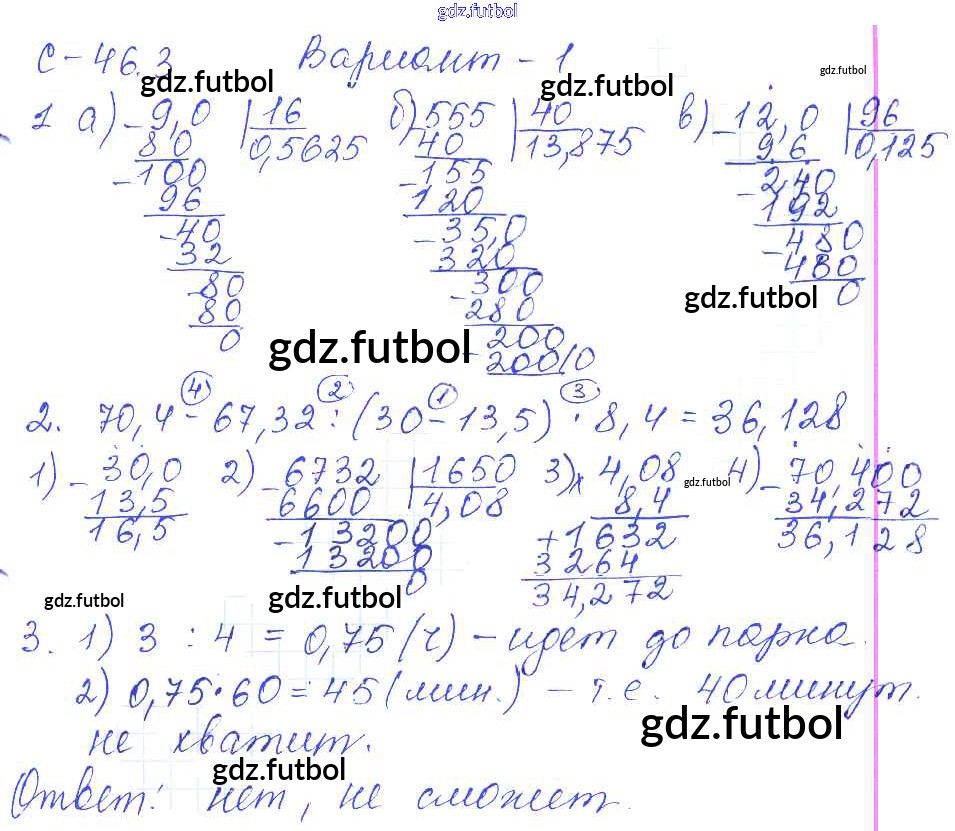 gdz.futbol
С-46.3 Вариант-1
gdz.futbol gdz.futbol gdz.futbol
1 а) -9,0 |16 б) 555 |40 в) -12,0 |96
80 0,5625 40 13,875 9 6 0,125
-100 -155 -2,40
96 120 192
-40 -35,0 -480
32 320 480
-80 -300 0
80 280 gdz.futbol
0 200
gdz.futbol -200|0
④ ② ① ③
2. 70,4 - 67,32 : (30 - 13,5) · 8,4 = 36,128
1) -30,0 2) -6732 |1650 3) х 4,08 gdz.futbol 4) -70,400
13,5 6600 4,08 8,4 34,272
16,5 -13200 +1632 36,128
13200 3264
0 34,272
gdz.futbol gdz.futbol gdz.futbol
3. 1) 3 : 4 = 0,75 (ч) - идет до парка.
2) 0,75·60=45 (мин.) - т.е. 40 минут.
gdz.futbol
не хватит.
gdz.futbol
Ответ: нет, не сможет.